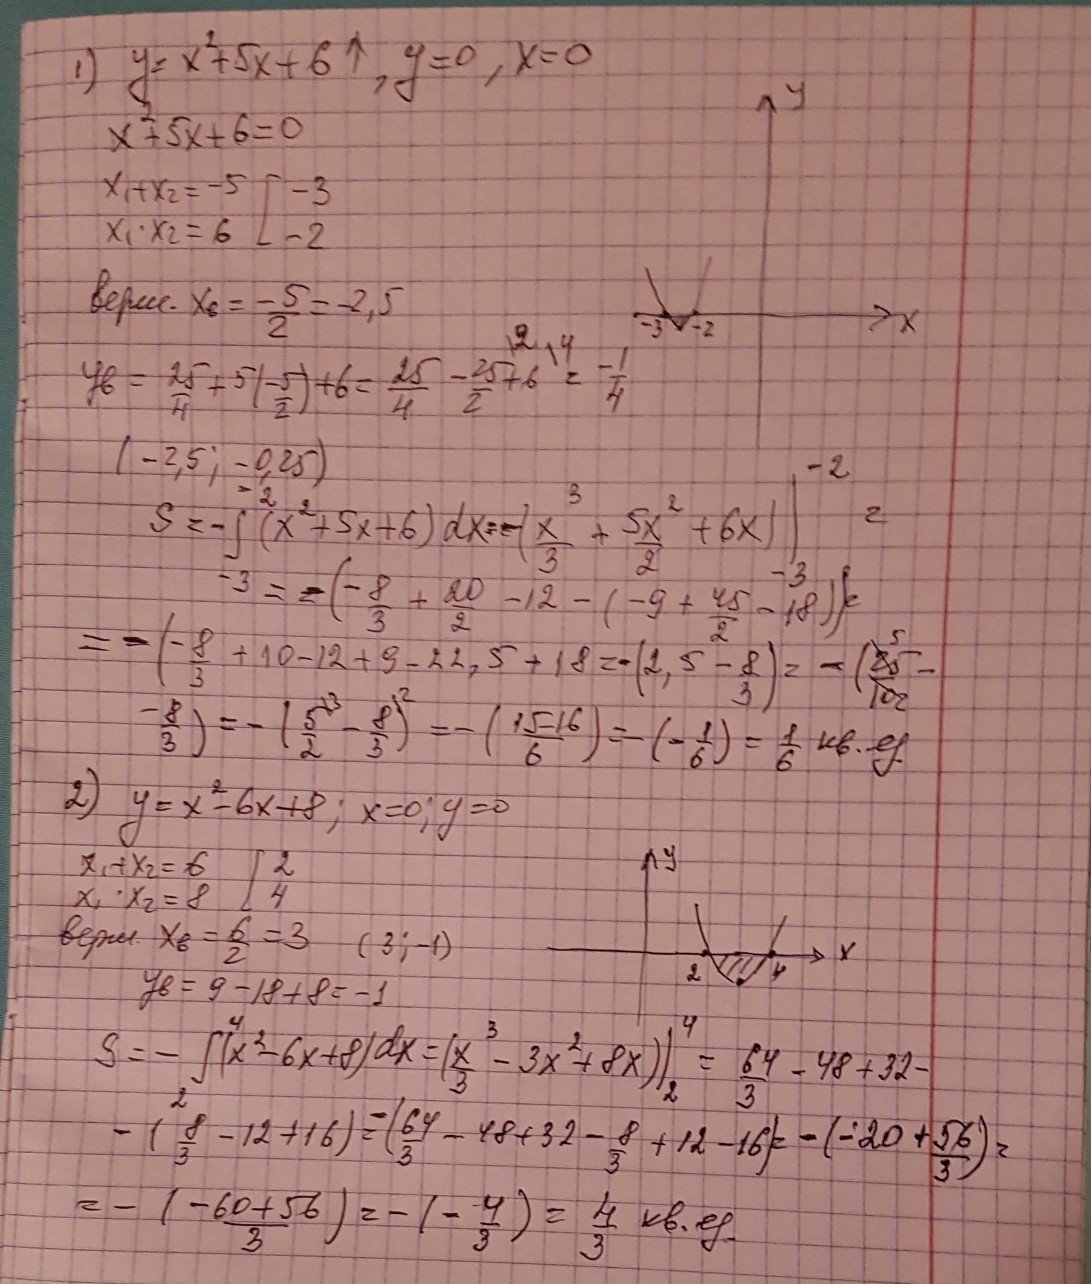 1) y = x²+5x+6↑, y=0, x=0
y
x²+5x+6=0
x₁+x₂ = -5 [ -3
x₁·x₂ = 6 [ -2
верш. xв = -5/2 = -2,5
-3 -2 x
yв = 25/4 + 5(-5/2) + 6 = 25/4 - 25/2 \2 + 6 \4 = -1/4
(-2,5; -0,25)
S = -∫₋₃⁻² (x²+5x+6) dx = -(x³/3 + 5x²/2 + 6x) |₋₃⁻² =
= -(-8/3 + 20/2 - 12 - (-9 + 45/2 - 18)) =
= -(-8/3 + 10-12+9-22,5+18 = -(2,5 - 8/3) = -(25/10 5/2 -
-8/3) = -(5/2 \3 - 8/3 \2) = -(15-16/6) = -(-1/6) = 1/6 кв. ед
2) y = x²-6x+8; x=0; y=0
x₁+x₂ = 6 [ 2
x₁·x₂ = 8 [ 4
y
верш. xв = 6/2 = 3 (3; -1)
2 4 x
yв = 9-18+8 = -1
S = -∫₂⁴ (x²-6x+8) dx = (x³/3 - 3x² + 8x)) |₂⁴ = 64/3 - 48+32-
-(8/3 - 12+16) = -(64/3 - 48+32 - 8/3 + 12-16) = -(-20 + 56/3) =
= -(-60+56/3) = -(-4/3) = 4/3 кв. ед.